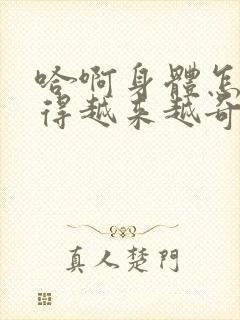 哈啊身體怎
得越来越奇
真人楚門